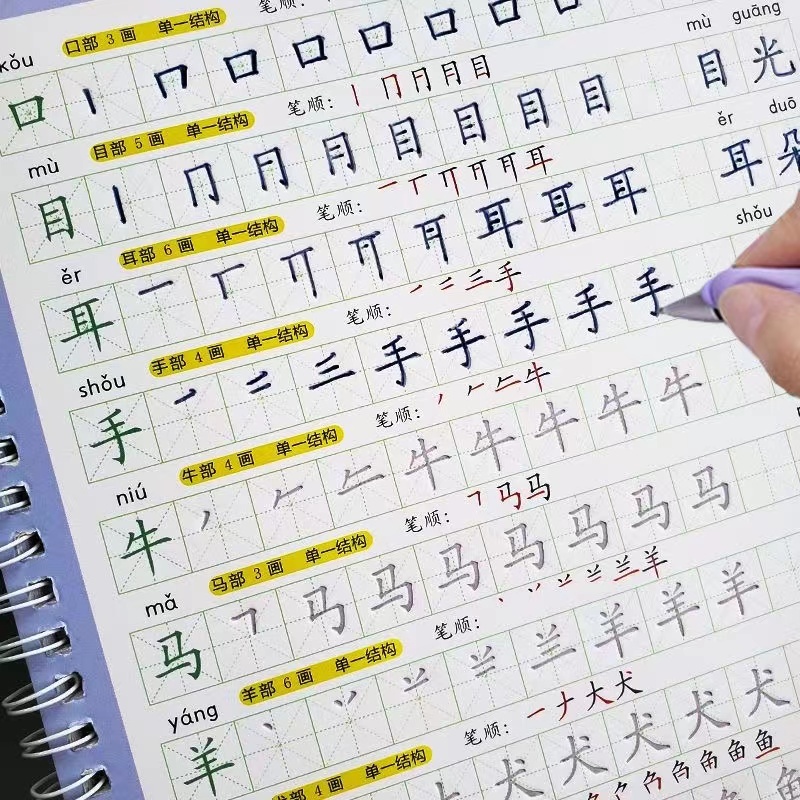 笔顺:
口部 3 画 单一结构
kǒu
口 丨 冂 口 口 口 口 口 口
目部 5 画 单一结构 笔顺: 丨 冂 月 月 目
mù mù guāng
目 丨 冂 月 月 目 目 目 目 目 光
耳部 6 画 单一结构 笔顺: 一 丅 耳
ěr ěr duō
耳 一 丅 耳 耳 耳 耳 朵
手部 4 画 单一结构 笔顺: ㇒ 二 三 手
shǒu shǒu
手 ㇒ 二 三 手 手 手 手 手
牛部 4 画 单一结构 笔顺: ㇒ 𠂉 牛
niú
牛 ㇒ 𠂉 牛 牛 牛 牛 牛
马部 3 画 单一结构 笔顺: ㇕ 马 马
mǎ
马 ㇕ 马 马 马 马 马 马 马
羊部 6 画 单一结构 笔顺: 丶 丷 䒑 兰 羊
yáng
羊 丶 丷 䒑 兰 羊 羊 羊
犬部 4 画 单一结构 笔顺: 一 ナ 大 犬
犬 犬 犬 犬 犬
鱼